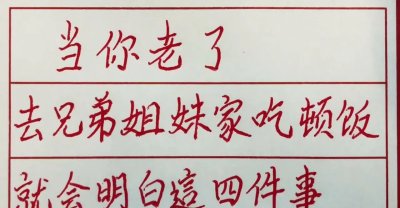 当你老了
去兄弟姐妹家吃顿饭
就会明白這四件事